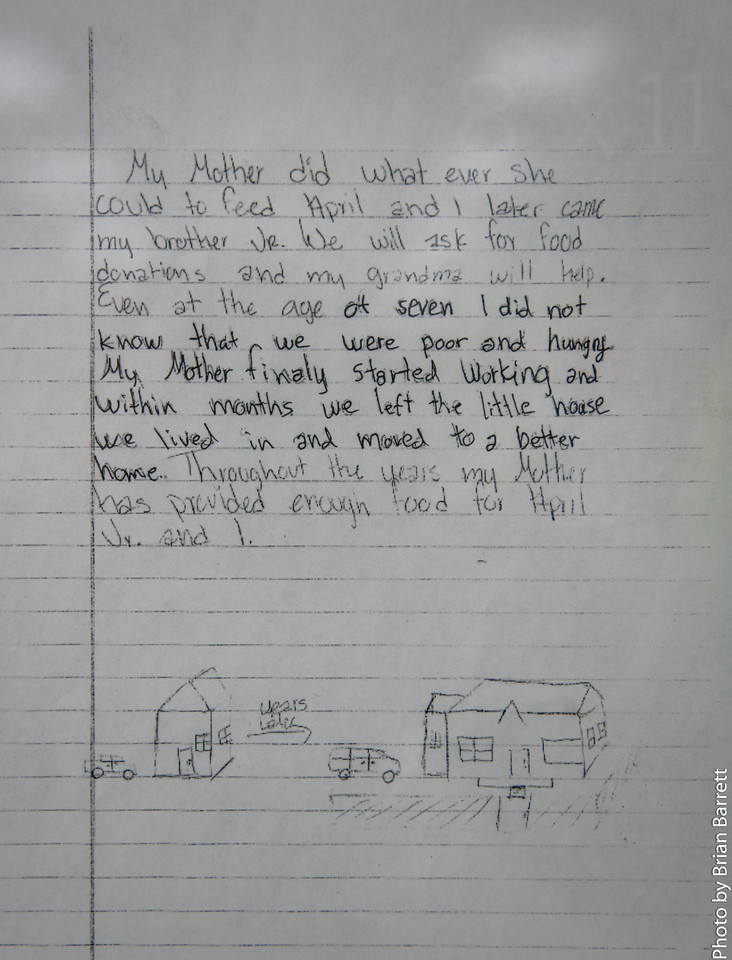 8 x 11
My Mother did what ever she
could to feed April and I later came
my brother Jr. We will ask for food
donations and my grandma will help.
Even at the age at seven I did not
know that we were poor and hungry
My Mother finaly started working and
within months we left the little house
we lived in and moved to a better
home. Throughout the years my Mother
has provided enough food for April
Jr. and I.
years
later
Photo by Brian Barrett